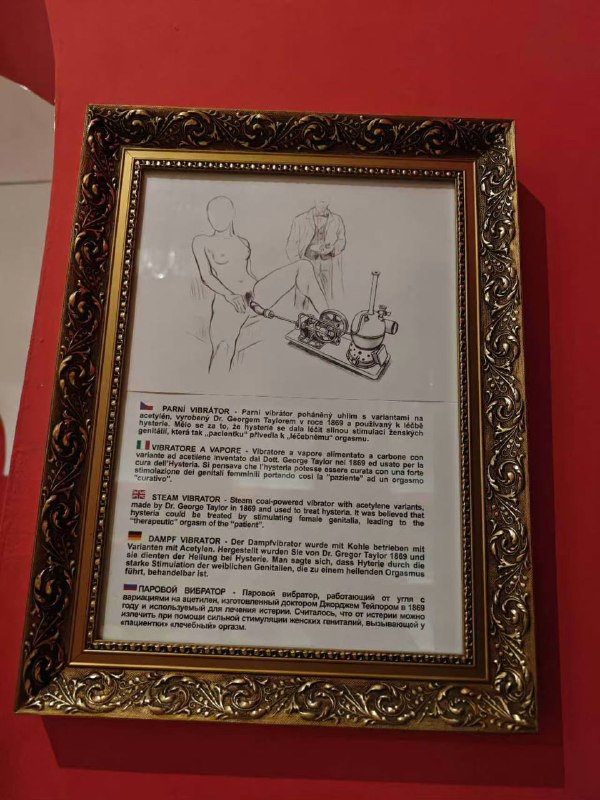 PARNÍ VIBRÁTOR - Parní vibrátor poháněný uhlím s variantami na
acetylén, vyrobený Dr. Georgem Taylorem v roce 1869 a používaný k léčbě
hysterie. Mělo se za to, že hysterie se dala léčit silnou stimulací ženských
genitálií, která tak „pacientku" přivedla k „léčebnému" orgasmu.
VIBRATORE A VAPORE - Vibratore a vapore alimentato a carbone con
variante ad acetilene inventato dal Dott. George Taylor nel 1869 ed usato per la
cura dell'Hysteria. Si pensava che l'hysteria potesse essere curata con una forte
stimolazione dei genitali femminili portando così la "paziente" ad un orgasmo
"curativo".
STEAM VIBRATOR - Steam coal-powered vibrator with acetylene variants,
made by Dr. George Taylor in 1869 and used to treat hysteria. It was believed that
hysteria could be treated by stimulating female genitalia, leading to the
"therapeutic" orgasm of the "patient".
DAMPF VIBRATOR - Der Dampfvibrator wurde mit Kohle betrieben mit
Varianten mit Acetylen. Hergestellt wurden Sie von Dr. Gregor Taylor 1869 und
sie dienten der Heilung bei Hysterie. Man sagte sich, dass Hyterie durch die
starke Stimulation der weiblichen Genitalien, die zu einem hellenden Orgasmus
führt, behandelbar ist.
ПАРОВОЙ ВИБРАТОР - Паровой вибратор, работающий от угля с
вариациями на ацетилен, изготовленный доктором Джорджем Тейлором в 1869
году и используемый для лечение истерии. Считалось, что от истерии можно
излечить при помощи сильной стимуляции женских гениталий, вызывающей у
«пациентки» «лечебный» оргазм.